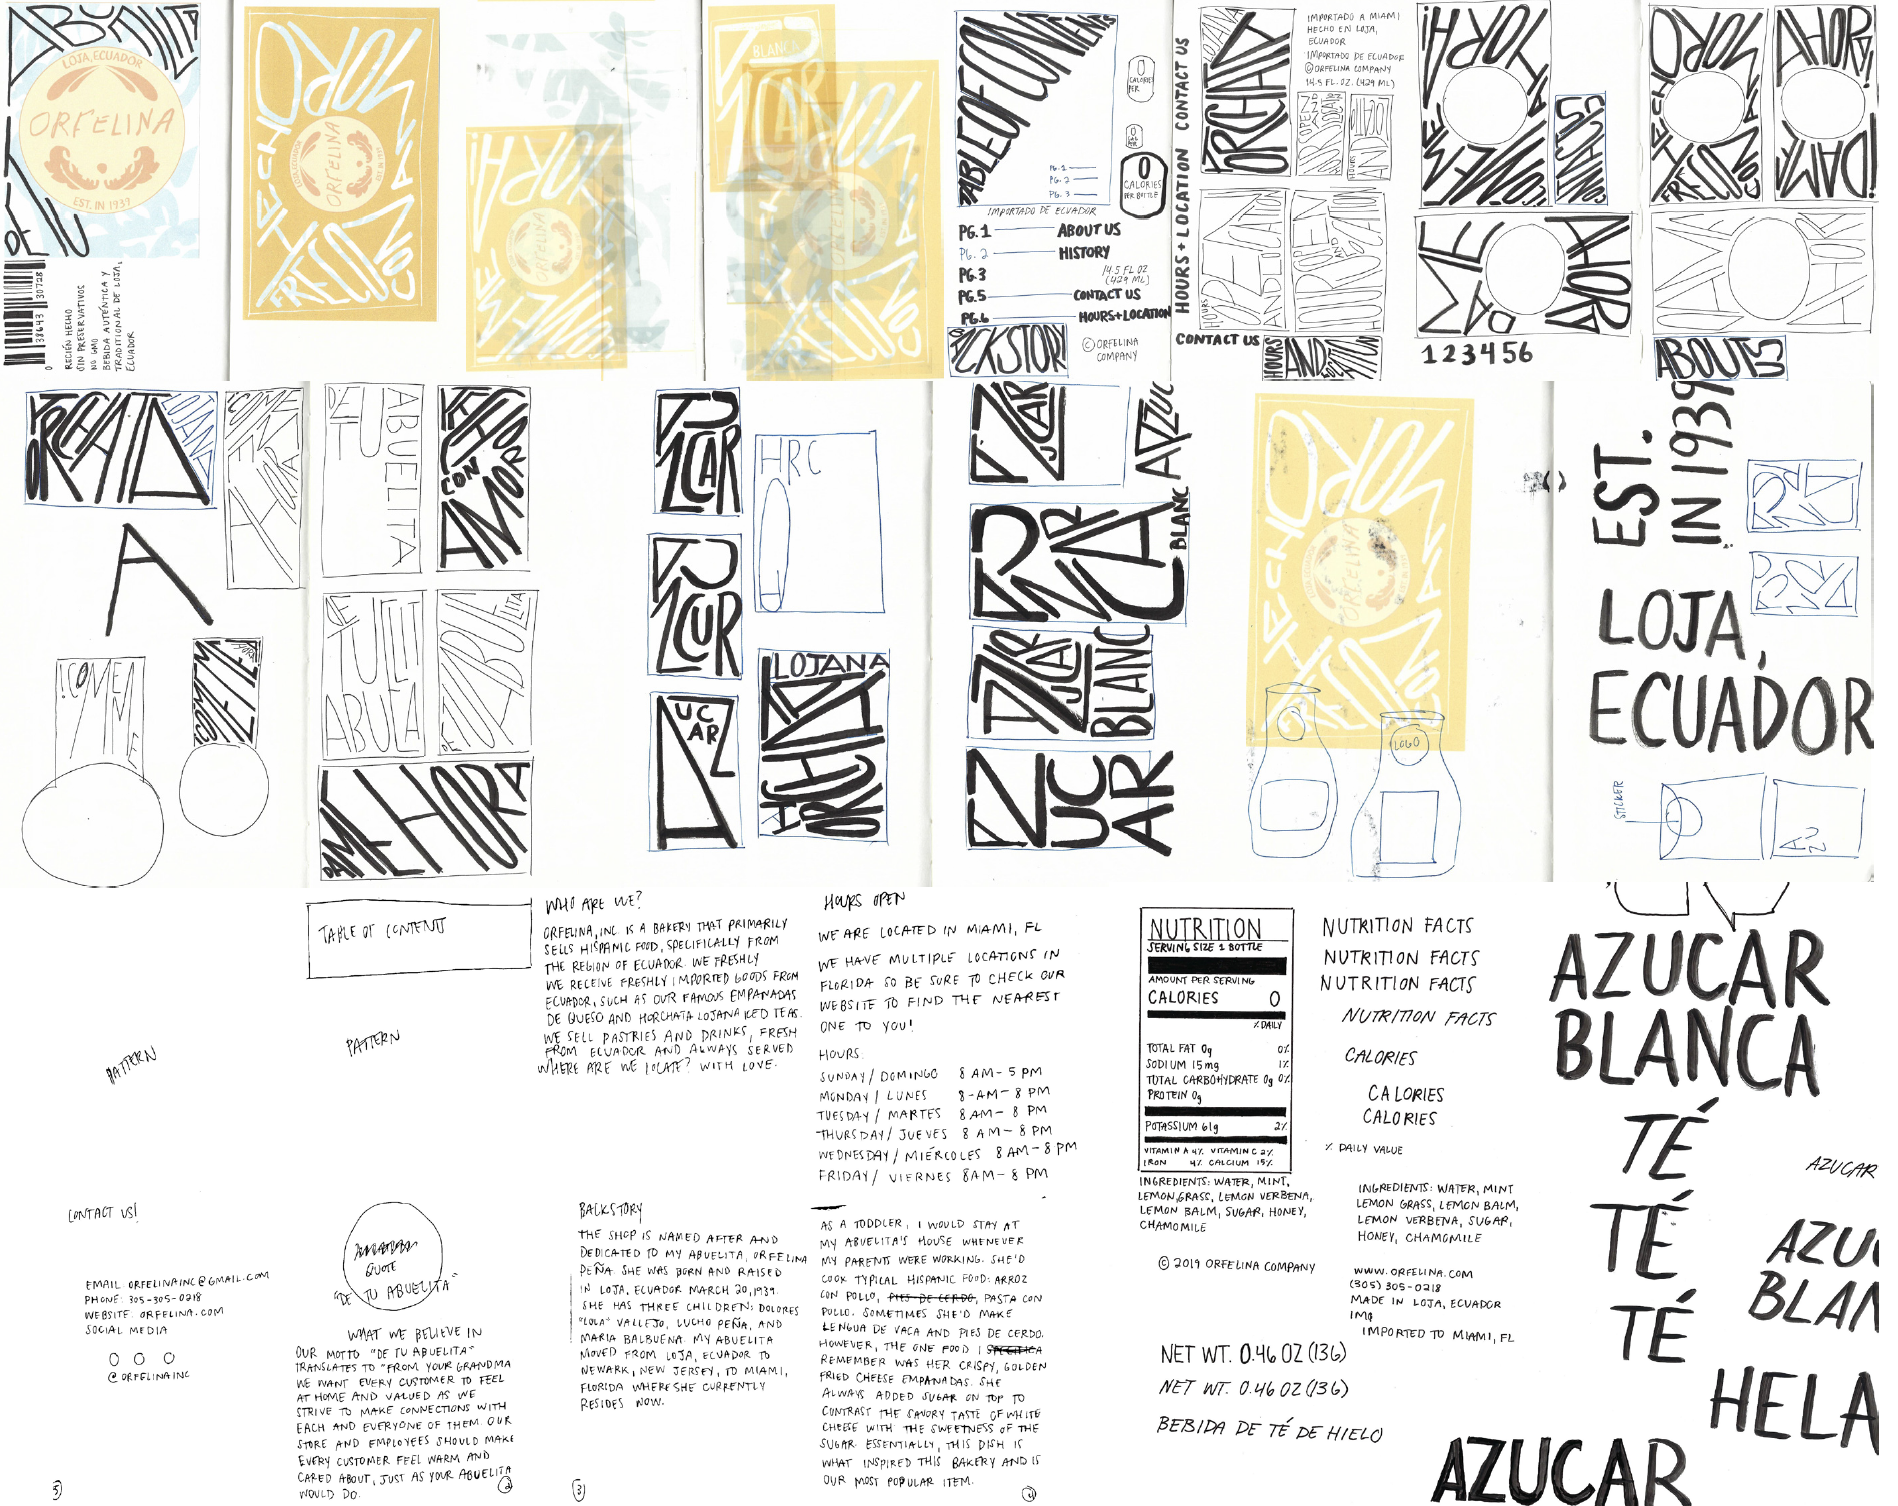 ABUELITA
DE TU
LOJA, ECUADOR
ORFELINA
EST. IN 1939
0 38643 30728
RECIÉN HECHO
SIN PRESERVATIVOS
NO GMO
BEBIDA AUTÉNTICA Y
TRADITIONAL DE LOJA,
ECUADOR
HECHO
FRESCO
CON AMOR
LOJA, ECUADOR
ORFELINA
EST. IN 1939
ORFELINA
BLANCA
ORFELINA
TABLE OF CONTENTS
PG. 1
PG. 2
PG. 3
0
CALORIES
PER
0
0
CALORIES
PER BOTTLE
IMPORTADO DE ECUADOR
PG. 1 ABOUT US
PG. 2 HISTORY
PG. 3
14.5 FL OZ
(429 ML)
PG. 5 CONTACT US
PG. 6 HOURS+LOCATION
BACKSTORY
© ORFELINA
COMPANY
HOURS + LOCATION CONTACT US
LOJANA
HORCHATA
IMPORTADO A MIAMI
HECHO EN LOJA,
ECUADOR
IMPORTADO DE ECUADOR
© ORFELINA COMPANY
14.5 FL. OZ. (429 ML)
HOURS OPEN
AND LOCATION
HOURS
HOURS OPEN
AND LOCATION
HOURS OPEN
AND
LOCATION
CONTACT US
HOURS
AND
LOCATION
CONTACT US
DAME
AHORA
1 2 3 4 5 6
HECHO
FRESCO
CON AMOR
AHORA!
DAME
DAME
AHORA
ABOUT US
HORCHATA
LOJANA
COMEME
AHORA
A
¡COMEME
¡COMEME
AHORA
DE TU
ABUELITA
HECHO
CON
AMOR
DE TU
ABUELITA
DE TU ABUELITA
DAME AHORA
AZUCAR
AZUCUR
AZUCAR
HRC
LOJANA
HORCHATA
AZUCAR
AZUC
AZUCAR
BLANC
AZUCAR
BLANC
AZUCAR
HECHO
FRESCO
CON AMOR
ORFELINA
LOGO
EST.
IN 1939
LOJA,
ECUADOR
STICKER
AZU
TABLE OF CONTENTS
PATTERN
PATTERN
WHO ARE WE?
ORFELINA, INC IS A BAKERY THAT PRIMARILY
SELLS HISPANIC FOOD, SPECIFICALLY FROM
THE REGION OF ECUADOR. WE FRESHLY
WE RECEIVE FRESHLY IMPORTED GOODS FROM
ECUADOR, SUCH AS OUR FAMOUS EMPANADAS
DE QUESO AND HORCHATA LOJANA ICED TEAS.
WE SELL PASTRIES AND DRINKS, FRESH
FROM ECUADOR AND ALWAYS SERVED
WHERE ARE WE LOCATE? WITH LOVE.
HOURS OPEN
WE ARE LOCATED IN MIAMI, FL
WE HAVE MULTIPLE LOCATIONS IN
FLORIDA SO BE SURE TO CHECK OUR
WEBSITE TO FIND THE NEAREST
ONE TO YOU!
HOURS:
SUNDAY / DOMINGO 8 AM - 5 PM
MONDAY / LUNES 8-AM - 8 PM
TUESDAY / MARTES 8 AM - 8 PM
THURSDAY / JUEVES 8 AM - 8 PM
WEDNESDAY / MIÉRCOLES 8 AM - 8 PM
FRIDAY / VIERNES 8AM - 8 PM
CONTACT US!
EMAIL: ORFELINAINC@GMAIL.COM
PHONE: 305-305-0218
WEBSITE: ORFELINA.COM
SOCIAL MEDIA
@ORFELINAINC
5
QUOTE
"DE TU ABUELITA"
WHAT WE BELIEVE IN
OUR MOTTO "DE TU ABUELITA"
TRANSLATES TO "FROM YOUR GRANDMA
WE WANT EVERY CUSTOMER TO FEEL
AT HOME AND VALUED AS WE
STRIVE TO MAKE CONNECTIONS WITH
EACH AND EVERYONE OF THEM. OUR
STORE AND EMPLOYEES SHOULD MAKE
EVERY CUSTOMER FEEL WARM AND
CARED ABOUT, JUST AS YOUR ABUELITA
WOULD DO.
2
BACKSTORY
THE SHOP IS NAMED AFTER AND
DEDICATED TO MY ABUELITA, ORFELINA
PEÑA. SHE WAS BORN AND RAISED
IN LOJA, ECUADOR MARCH 20, 1939.
SHE HAS THREE CHILDREN: DOLORES
"LOLA" VALLEJO, LUCHO PEÑA, AND
MARIA BALBUENA. MY ABUELITA
MOVED FROM LOJA, ECUADOR TO
NEWARK, NEW JERSEY, TO MIAMI,
FLORIDA WHERE SHE CURRENTLY
RESIDES NOW.
3
AS A TODDLER, I WOULD STAY AT
MY ABUELITA'S HOUSE WHENEVER
MY PARENTS WERE WORKING. SHE'D
COOK TYPICAL HISPANIC FOOD: ARROZ
CON POLLO, PIES DE CERDO, PASTA CON
POLLO. SOMETIMES SHE'D MAKE
LENGUA DE VACA AND PIES DE CERDO.
HOWEVER, THE ONE FOOD I SPECIFICA
REMEMBER WAS HER CRISPY, GOLDEN
FRIED CHEESE EMPANADAS. SHE
ALWAYS ADDED SUGAR ON TOP TO
CONTRAST THE SAVORY TASTE OF WHITE
CHEESE WITH THE SWEETNESS OF THE
SUGAR. ESSENTIALLY, THIS DISH IS
WHAT INSPIRED THIS BAKERY AND IS
OUR MOST POPULAR ITEM.
4
NUTRITION
SERVING SIZE 1 BOTTLE
AMOUNT PER SERVING
CALORIES 0
% DAILY
TOTAL FAT 0g 0%
SODIUM 15mg 1%
TOTAL CARBOHYDRATE 0g 0%
PROTEIN 0g
POTASSIUM 61g 2%
VITAMIN A 4% VITAMIN C 2%
IRON 4% CALCIUM 15%
INGREDIENTS: WATER, MINT,
LEMON GRASS, LEMON VERBENA,
LEMON BALM, SUGAR, HONEY,
CHAMOMILE
© 2019 ORFELINA COMPANY
NET WT. 0.46 OZ (13G)
NET WT. 0.46 OZ (13G)
BEBIDA DE TÉ DE HIELO
NUTRITION FACTS
NUTRITION FACTS
NUTRITION FACTS
NUTRITION FACTS
CALORIES
CALORIES
CALORIES
% DAILY VALUE
INGREDIENTS: WATER, MINT
LEMON GRASS, LEMON BALM,
LEMON VERBENA, SUGAR,
HONEY, CHAMOMILE
WWW.ORFELINA.COM
(305) 305-0218
MADE IN LOJA, ECUADOR
IMP
IMPORTED TO MIAMI, FL
AZUCAR
BLANCA
TÉ
TÉ
TÉ
AZUCAR
AZU
BLAN
HELA
AZUCAR